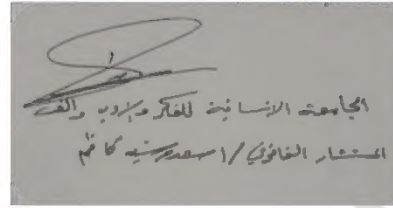 الجامعة الانسانية للفكر والادب والفن
المستشار القانوني / اسعد رشيد كاظم